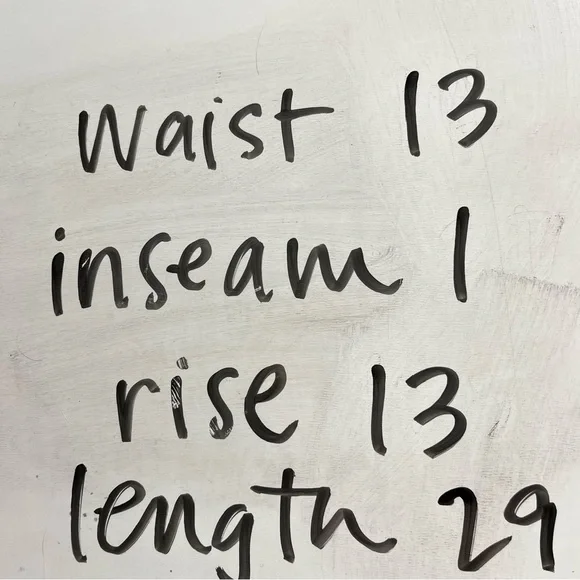 waist 13
inseam 1
rise 13
length 29